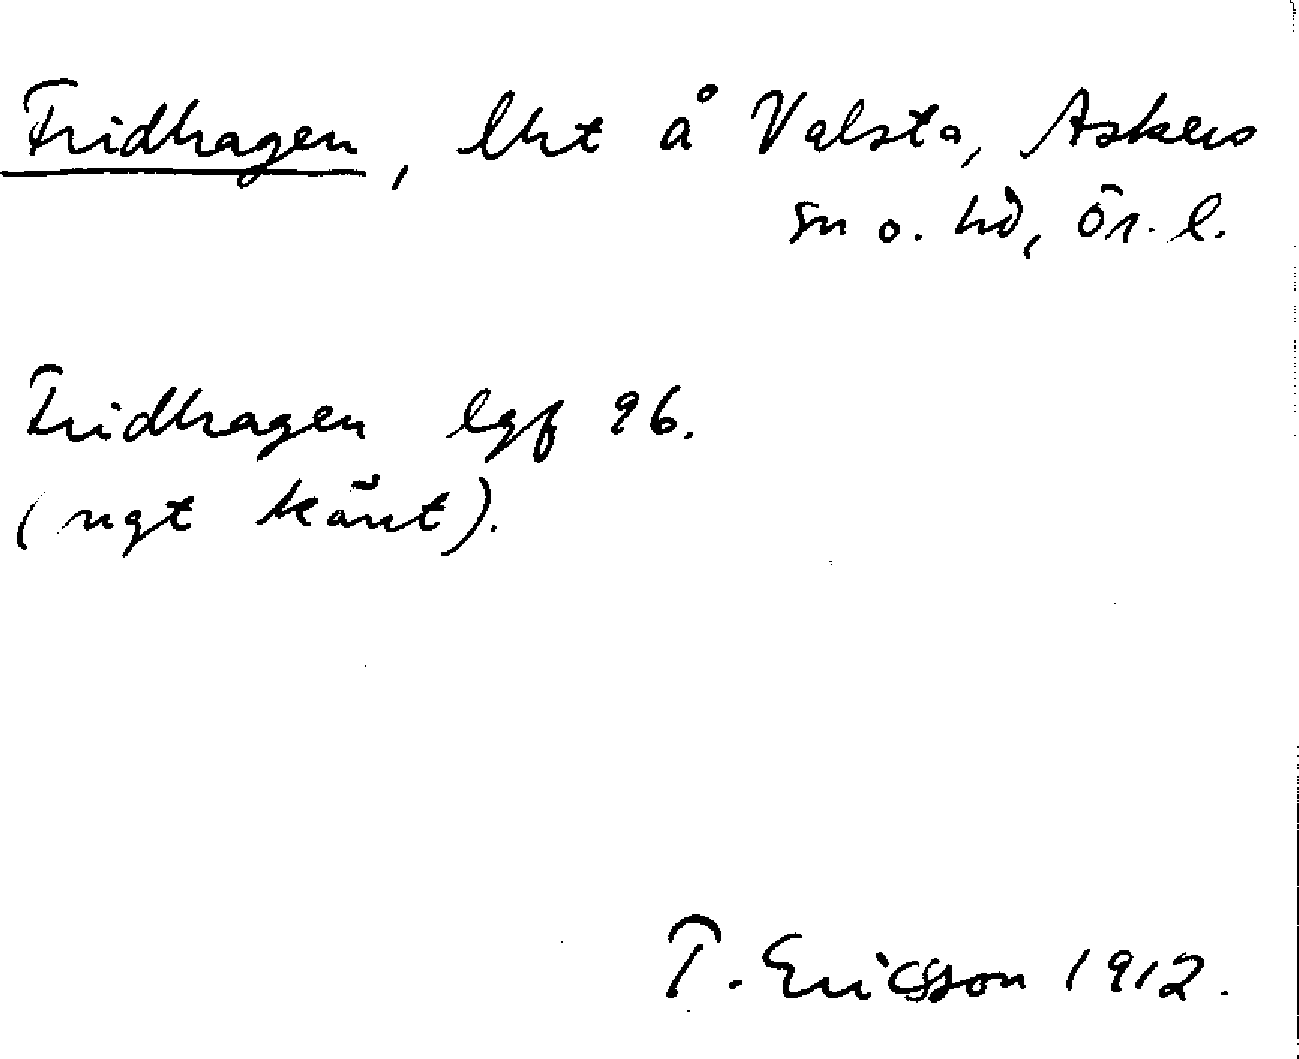 Fridhagen, lht å Valsta, Askers
sn o. hd, Ör. l.
Fridhagen lgf 96.
(ngt känt).
T. Ericsson 1912.